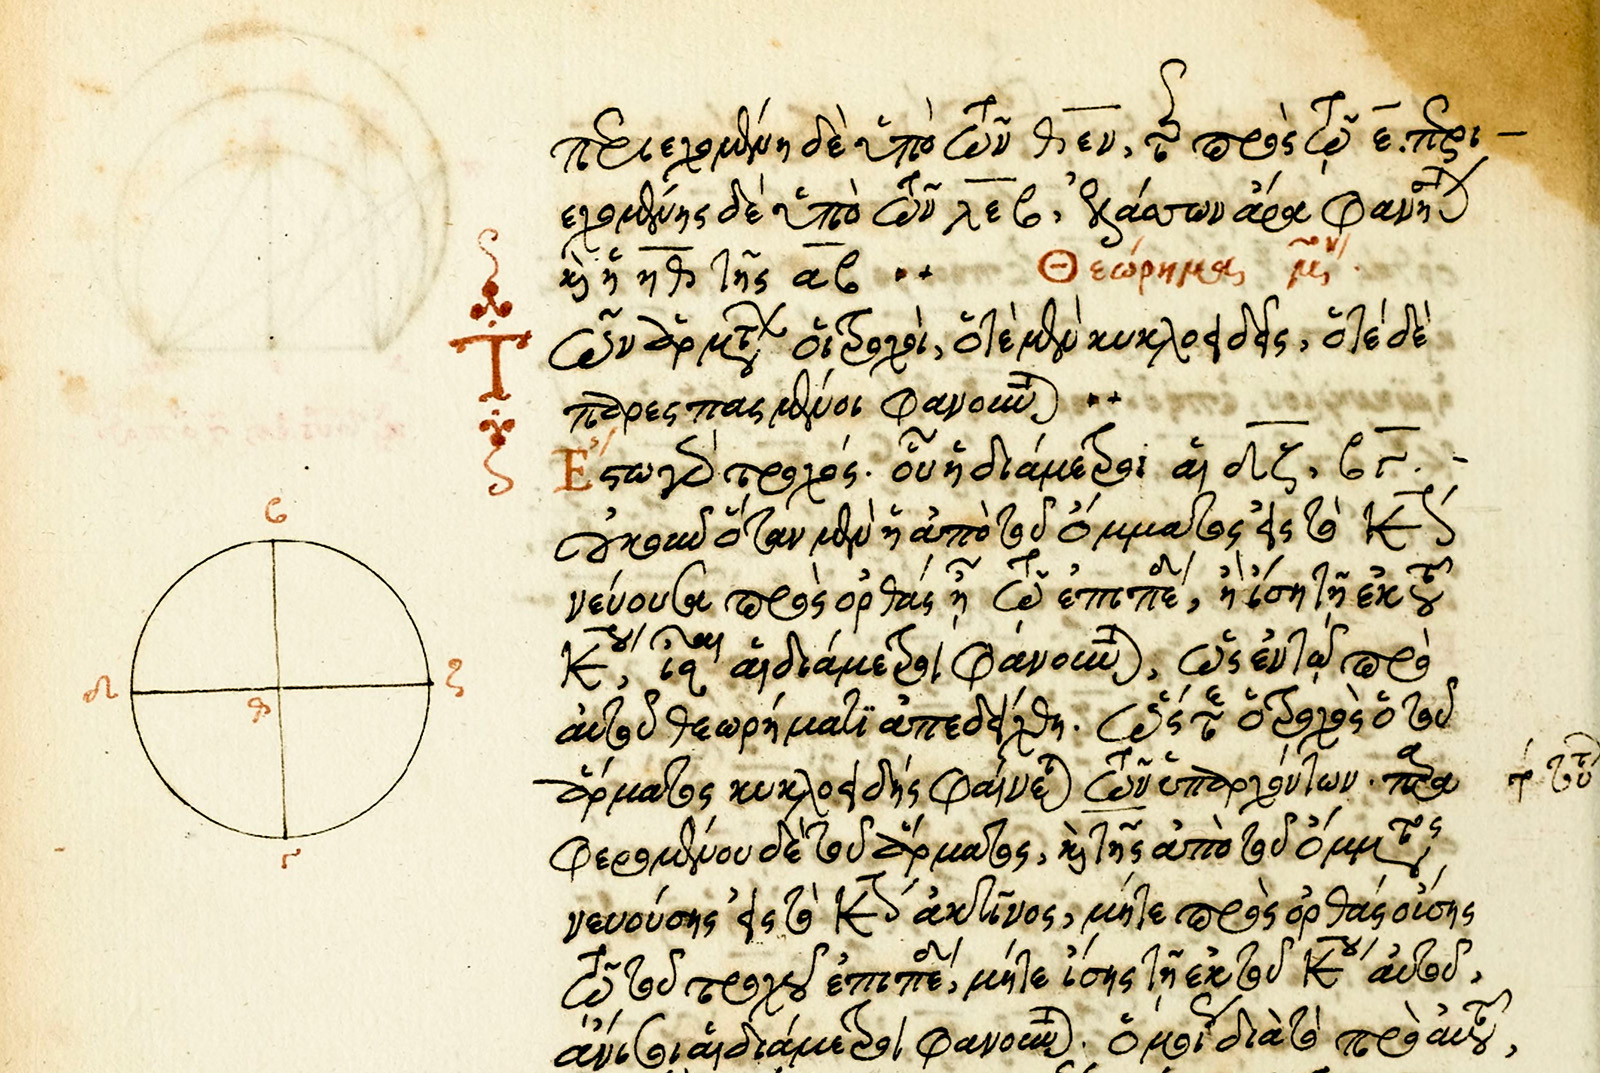 περιεχομένη δὲ ὑπὸ τῶν θεν, τῆς πρὸς τῷ ε. περι-
εχομένης δὲ ὑπὸ τῶν λεβ, ἐλάσσων ἄρα φανήσεται
καὶ ἡ ηθ τῆς αβ
Θεώρημα
Τῶν ἁρμάτων οἱ τροχοὶ, ὁτὲ μὲν κυκλοειδεῖς, ὁτὲ δὲ
παρεσπασμένοι φανοῦνται
Ἔστω γὰρ τροχός. οὗ ἡ διάμετροι αἱ δζ, βγ. -
οὐκοῦν ὅταν μὲν ἡ ἀπὸ τοῦ ὄμματος εἰς τὸ κέντρον
νεύουσα πρὸς ὀρθὰς ᾖ τῷ ἐπιπέδῳ, ἢ ἴση τῇ ἐκ τοῦ
κέντρου, ἴσαι αἱ διάμετροι φανοῦνται, ὡς ἐν τῷ πρὸ
αὐτοῦ θεωρήματι ἀπεδείχθη. ὥστε ὁ τροχὸς ὁ τοῦ
ἅρματος κυκλοειδὴς φαίνεται τῶν ὑπαρχόντων. παρα
φερομένου δὲ τοῦ ἅρματος, καὶ τῆς ἀπὸ τοῦ ὄμματος
νευούσης εἰς τὸ κέντρον ἀκτῖνος, μήτε πρὸς ὀρθὰς οὔσης
τῷ τοῦ τροχοῦ ἐπιπέδῳ, μήτε ἴσης τῇ ἐκ τοῦ κέντρου αὐτοῦ,
ἄνισοι αἱ διάμετροι φανοῦνται. ὁμοίως διὰ τὸ πρὸ αὐτοῦ,
β
δ
ζ
θ
γ